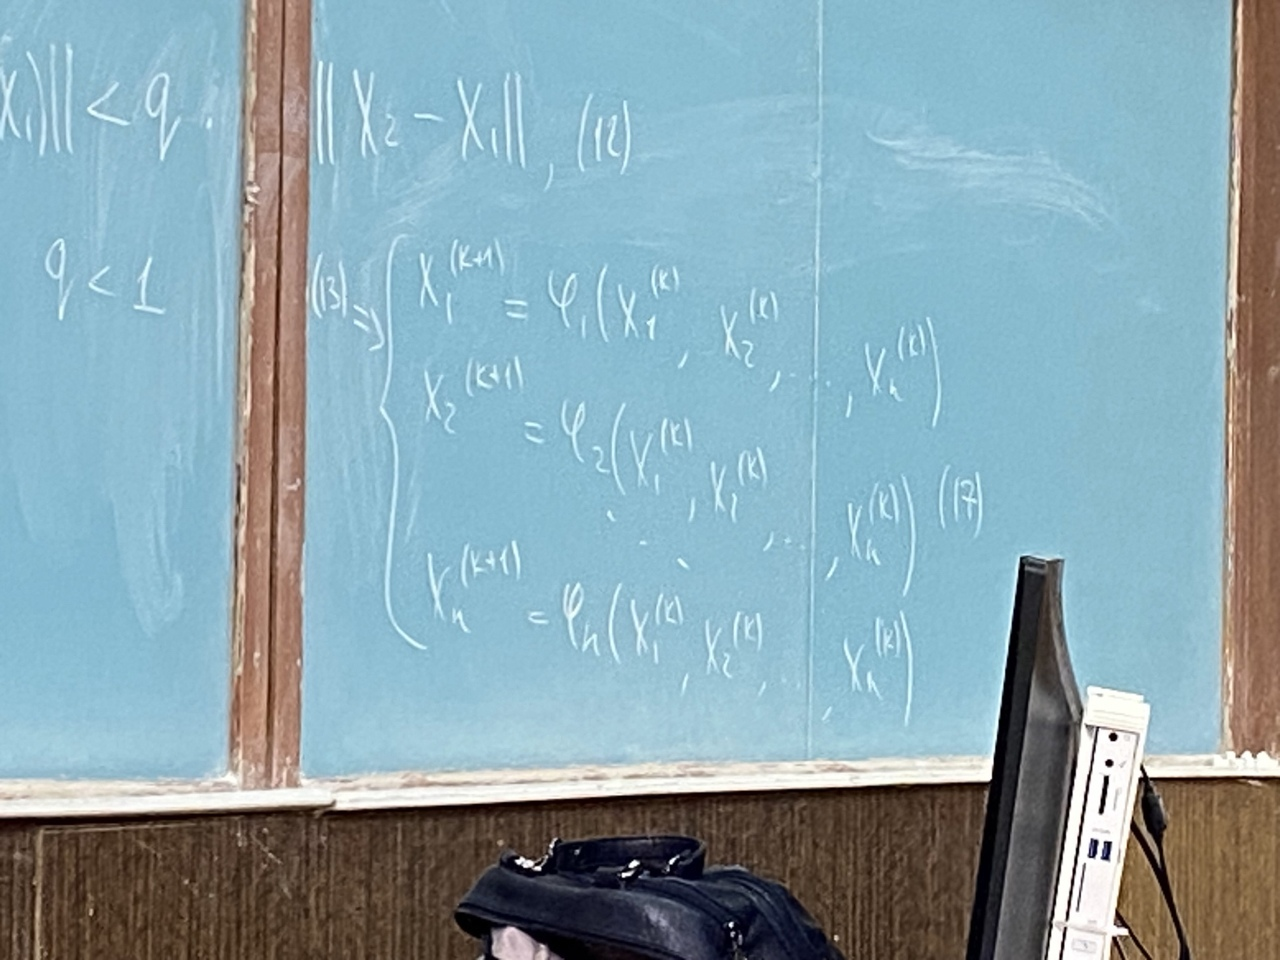 X₁)|| < q · || X₂ − X₁ ||, (12)
q < 1
(13) ⇒ { X₁^(k+1) = φ₁(X₁^(k), X₂^(k), ..., Xₙ^(k))
X₂^(k+1) = φ₂(X₁^(k), X₂^(k), ..., Xₙ^(k)) (17)
. . .
Xₙ^(k+1) = φₙ(X₁^(k), X₂^(k), ..., Xₙ^(k))